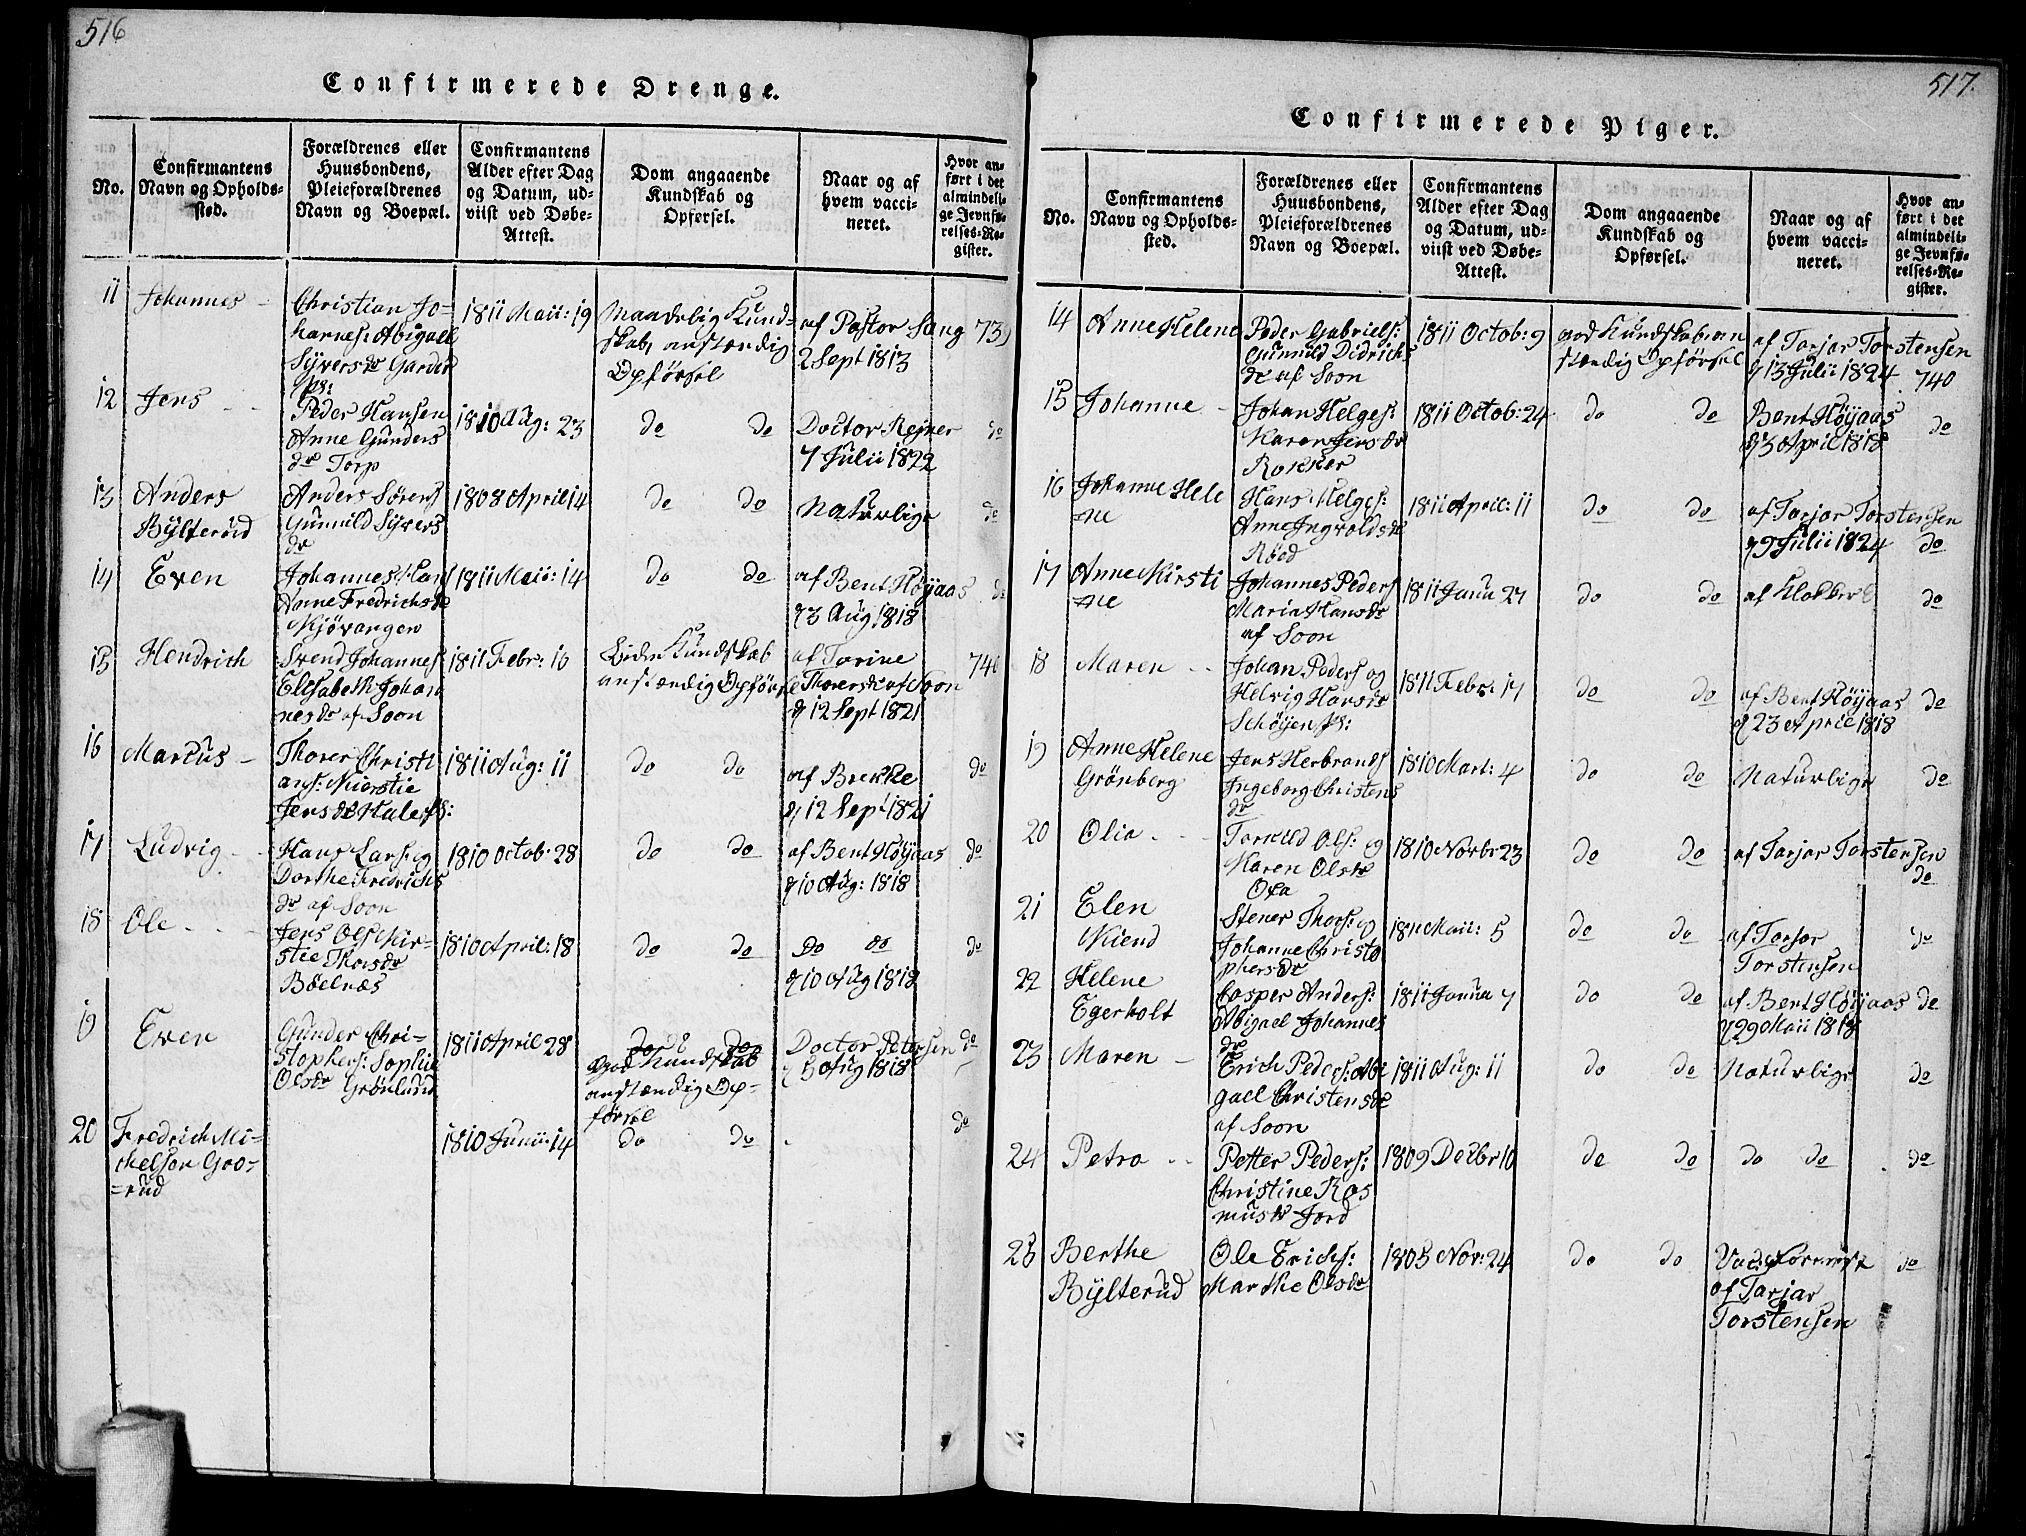 516
Confirmerede Drenge.
No.
Confirmantens
Navn og Opholds-
sted.
Forældrenes eller
Huusbondens,
Pleieforældrenes
Navn og Boepæl.
Confirmantens
Alder efter Dag
og Datum, ud-
viist ved Døbe-
Attest.
Dom angaaende
Kundskab og
Opførsel.
Naar og af
hvem vacci-
neret.
Hvor an-
ført i det
almindeli-
ge Jevnfø-
relses-Re-
gister.
11 Johannes - Christian Jo- 1811 Maii: 19 Maadelig Kund- af Pastor Lang 739
hannes: Abigael skab, anstændig 2 Sept 1813
Syversdr Garder Opførsel
12 Jens - - Peder Hansen 1810 Aug: 23 do do Doctor Rejner do
Anne Gunders 7 Julii 1822
dr Torp
13 Anders Anders Sørens 1808 April 14 do do Naturlige do
Bylterud Gunnild Syvers
dr
14 Even Johannes Hans 1811 Maii: 14 do do af Bent Høyaas do
Anne Fredrichsdr 23 Aug 1818
Kjøvangen
15 Hendrich Svend Johannes 1811 Febr: 10 Liden Kundskab af Torine 740
Elisabeth Johan anstændig Opførsel Thorersdr af Soon
nesdr af Soon d 12 Sept 1821
16 Marcus - Thorer Christi 1811 Aug: 11 do do af Brekke do
ans: Kierstie d 12 Sept 1821
Jensdr Huler
17 Ludvig - - Hans Lars: og 1810 Octob: 28 do do af Bent Høyaas do
Dorthe Fredrichs d 10 Aug: 1818
dr af Soon
18 Ole - - - Jens Ols Kir- 1810 April: 18 do do do do do
stie Thorsdr d 10 Aug 1818
Bøelnæs
19 Even Gunder Chri- 1811 April 28 do do Doctor Petersen do
stophers: Sophie God Kundskab d 5 Aug 1818
Olsdr Grønlund anstændig Op-
førsel
20 Fredrich Mi- 1810 Junii: 14 do do - do
chelson Goo-
-rud
517.
Confirmerede Piger.
No.
Confirmantens
Navn og Opholds-
sted.
Forældrenes eller
Huusbondens,
Pleieforældrenes
Navn og Boepæl.
Confirmantens
Alder efter Dag
og Datum, ud-
viist ved Døbe-
Attest.
Dom angaaende
Kundskab og
Opførsel.
Naar og af
hvem vacci-
neret.
Hvor an-
ført i det
almindeli-
ge Jevnfø-
relses-Re-
gister.
14 Anne Helene Peder Gabriels: 1811 Octob: 9 god Kundskab an af Tarjar Torstensen
Gunnild Didrichs stændig Opførsel d 13 Julii 1824 740
dr af Soon
15 Johanne - Johan Helges: 1811 Octob: 24 do do Bent Høyaas do
Karen Jensdr 23 April 1818
Rokker
16 Johanne Hele Hans Helges: 1811 April: 11 do do af Tarjar Torstensen
-ne Anne Ingvoldsdr 9 Julii 1824 do
Røed
17 Anne Kirsti Johannes Peders 1811 Janu 27 do do af Klokker do
-ne Maria Hansdr
af Soon
18 Maren - - Johan Peders og 1811 Febr: 17 do do af Bent Høyaas do
Helvig Hansdr d 23 April 1818
Schøyen
19 Anne Helene Jens Herbrands 1810 Mart: 4 do do Naturlige do
Grønberg Ingeborg Christens
dr
20 Olia - - - Torkild Ols: og 1810 Novbr 23 do do af Tarjar Torstensen
Karen Olsdr do
Oxa
21 Elen Stener Thors: og 1811 Maii: 5 do do af Tarjar do
Kiend Johanne Christo Torstensen
phersdr
22 Helene Casper Anders: 1811 Janua 7 do do af Bent Høyaas do
Egerholt Abigael Johannes d 29 Maii 1818
dr
23 Maren - Erich Peders: Abi 1811 Aug: 11 do do Naturlige do
gael Christensdr
af Soon
24 Petra - - Petter Peders: 1809 Decbr 10 do do do do do
Christine Ras
musdr Jord
25 Berthe Ole Erichs: 1805 Nov: 24 do do do
Bylterud Marthe Olsdr af Tarjar
Torstensen